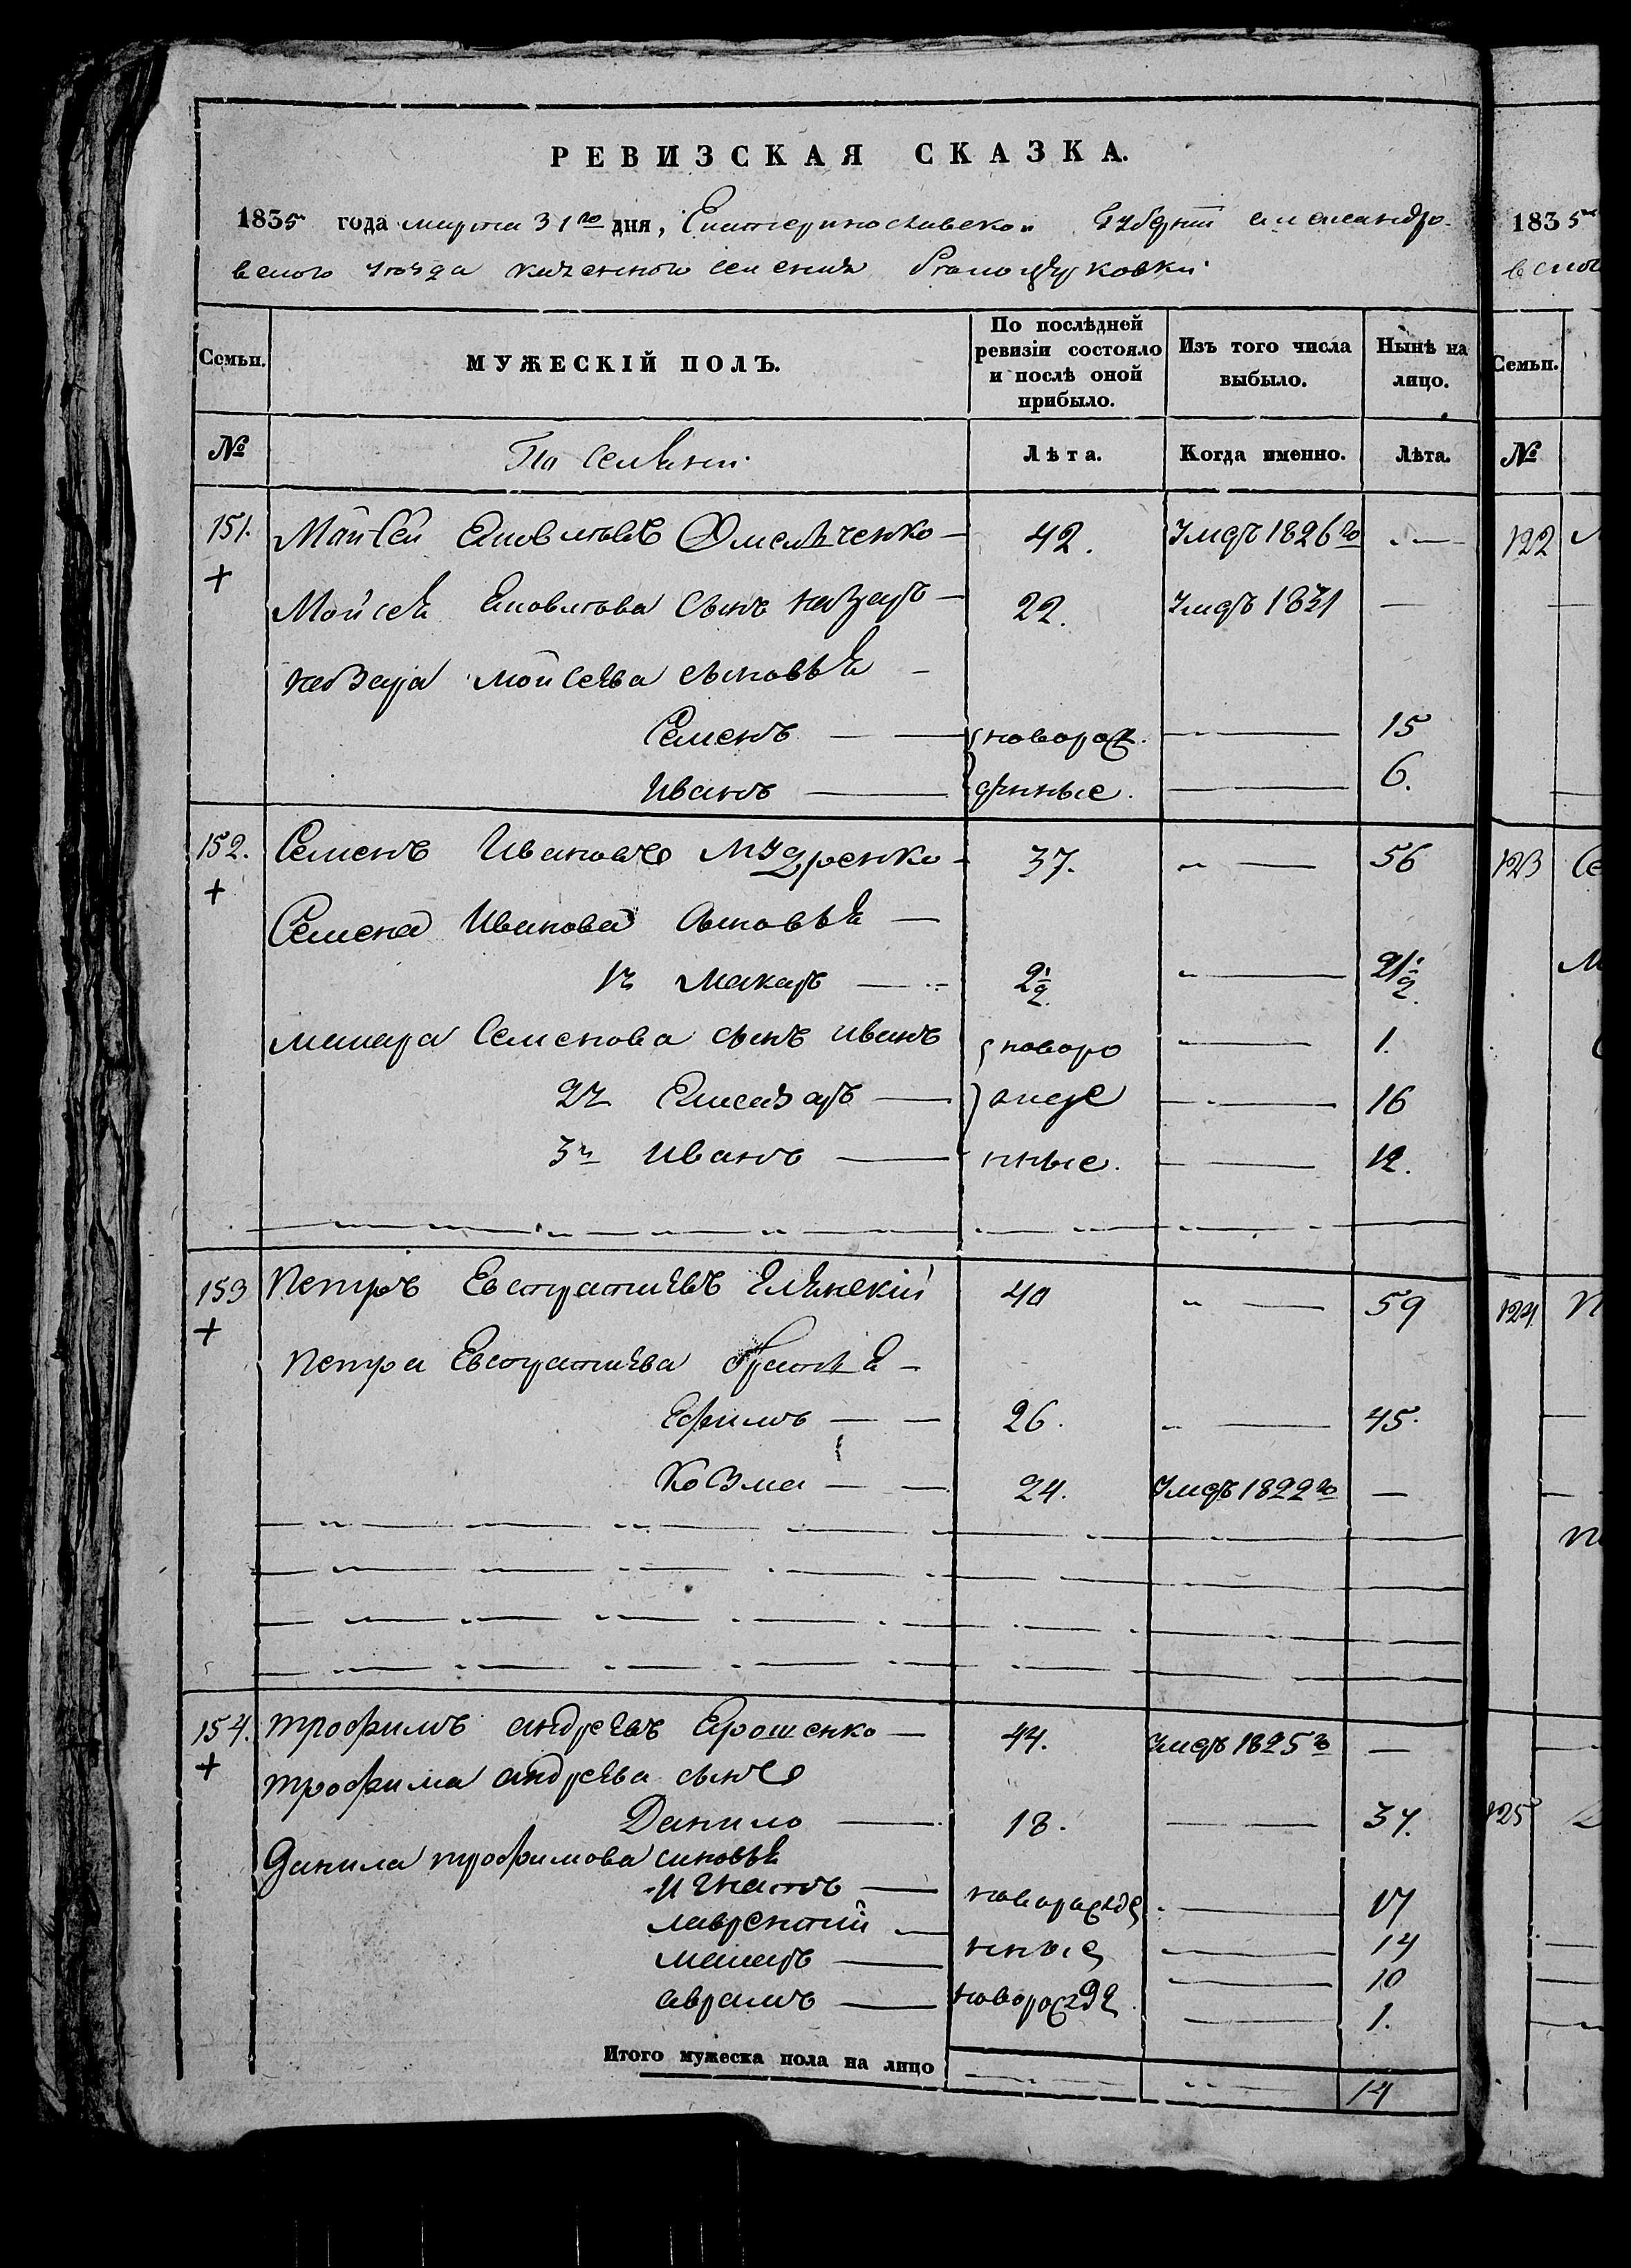 РЕВИЗСКАЯ СКАЗКА.
1835 года марта 31го дня, Екатеринославской Губернiи Александро-
вского уѣзда казенного селенiя
Семьи.
МУЖЕСКІЙ ПОЛЪ.
По послѣдней ревизіи состояло и послѣ оной прибыло.
Изъ того числа выбыло.
Нынѣ на лицо.
№
Лѣта.
Когда именно.
Лѣта.
151. Мойсей Яковлевъ Омельченко — 42. Умеръ 1826го —
+
Мойсея Яковлева сынъ Назаръ — 22. Умеръ 1831 —
Назара Мойсеева сыновья —
Семенъ — новорож. — 15
Иванъ — денные. — 6.
152. Семенъ Ивановъ Мудренко — 37. — 56
+
Семена Иванова сыновья —
1й Макаръ — 2 1/2 — 21 1/2
Макара Семенова сынъ Иванъ новоро — 1.
2й Елисазаръ — — 16
3й Иванъ — нные. — 12.
153 Петръ Евстратиевъ 40 — 59
+
Петра Евстратиева братья —
Ефимъ — 26. — 45.
Козма — 24. Умеръ 1822го —
154. Трофимъ Андреевъ Ярошенко — 44. Умеръ 1825го —
+
Трофима Андреева сынъ
Данило — 18. — 37.
Данила Трофимова синовья
Игнатъ — новорожде — 17
Лаврентий — нные — 14
Макаръ — — 10
Аврамъ — новорожде — 1.
Итого мужеска пола на лицо — — 14
1835
№
122
123
124
125